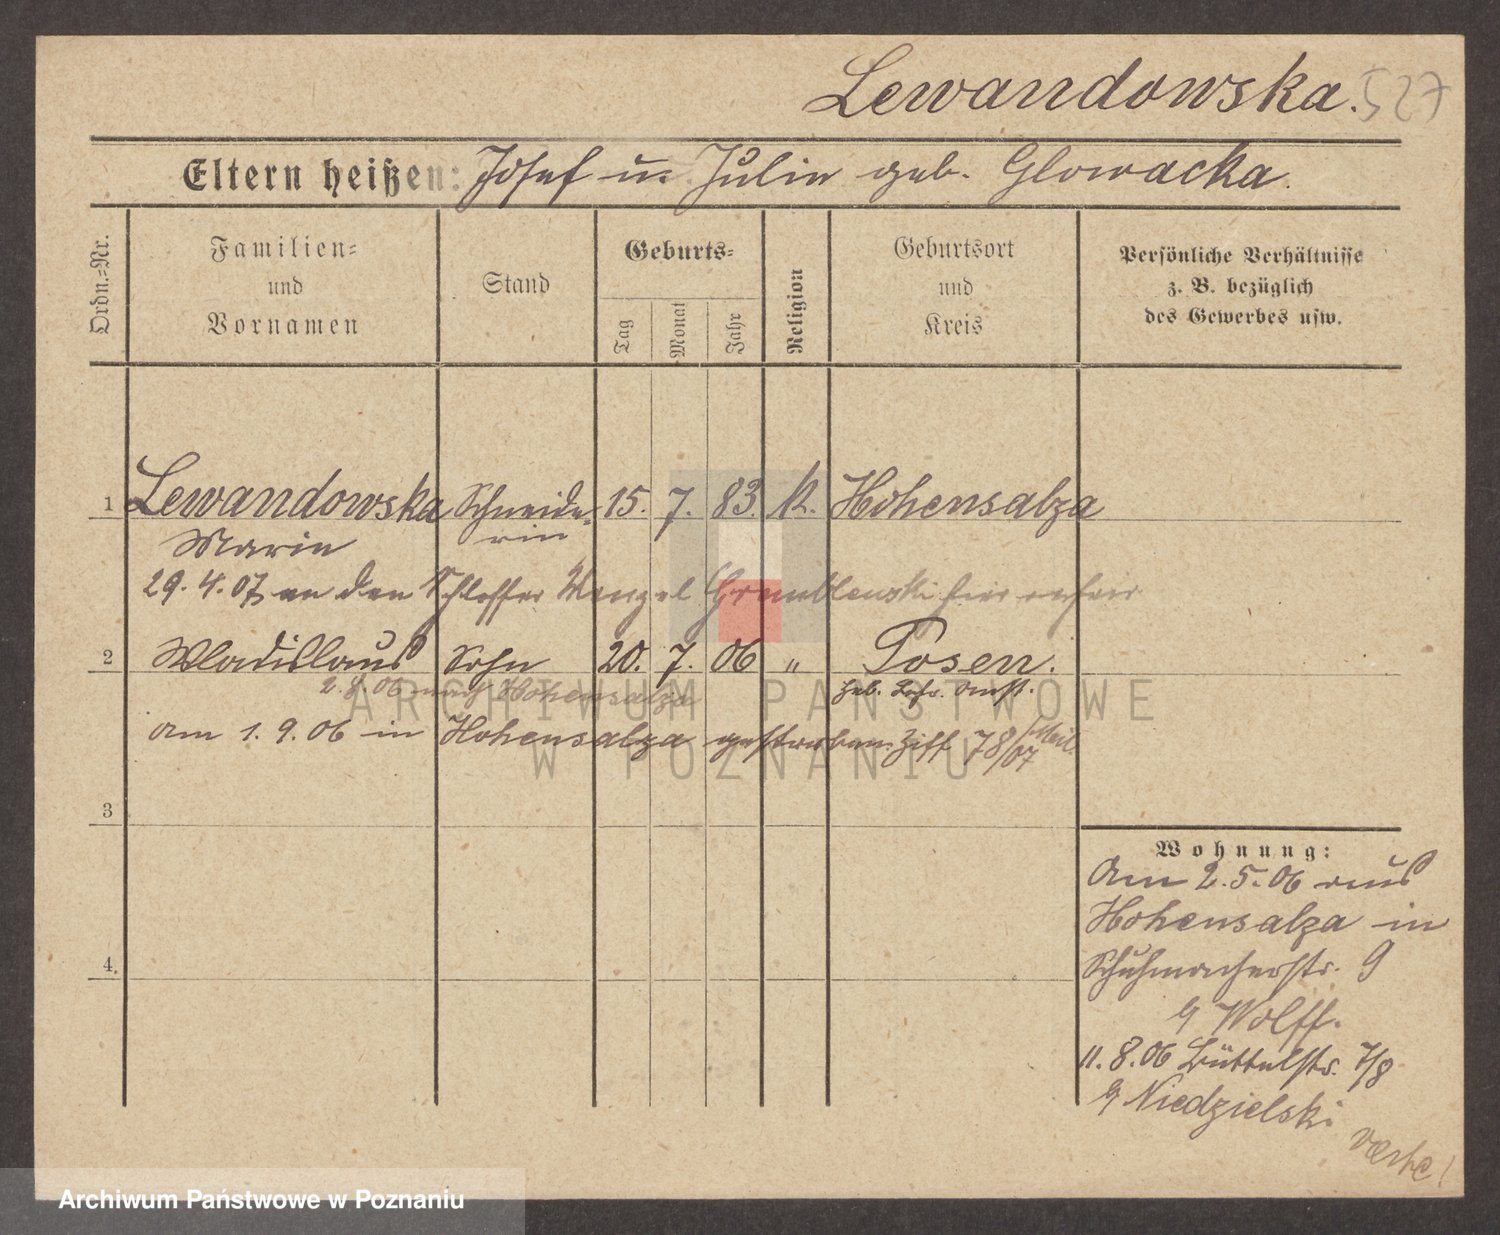 Lewandowska. 527
Eltern heißen: Josef u. Julie geb. Glowacka.
Ordn.=Nr.
Familien=
und
Vornamen
Stand
Geburts=
Tag
Monat
Jahr
Religion
Geburtsort
und
Kreis
Persönliche Verhältnisse
z. B. bezüglich
des Gewerbes usw.
1 Lewandowska Schneide- 15. 7. 83. k. Hohensalza
Marie rin
29.4.07 an den Schlosser Wenzel hier verheir
2 Wladislaus Sohn 20. 7. 06 " Posen.
2.8.06 nach Hohensalza
Geb. Anst.
am 1.9.06 in Hohensalza gestorben. Ziff 78/07
3
4.
Wohnung:
Am 2.5.06 aus
Hohensalza in
Schuhmacherstr. 9
b/ Wolff.
11.8.06 Büttelstr. 7/8
b/ Niedzielski
ARCHIWUM PAŃSTWOWE
W POZNANIU
Archiwum Państwowe w Poznaniu